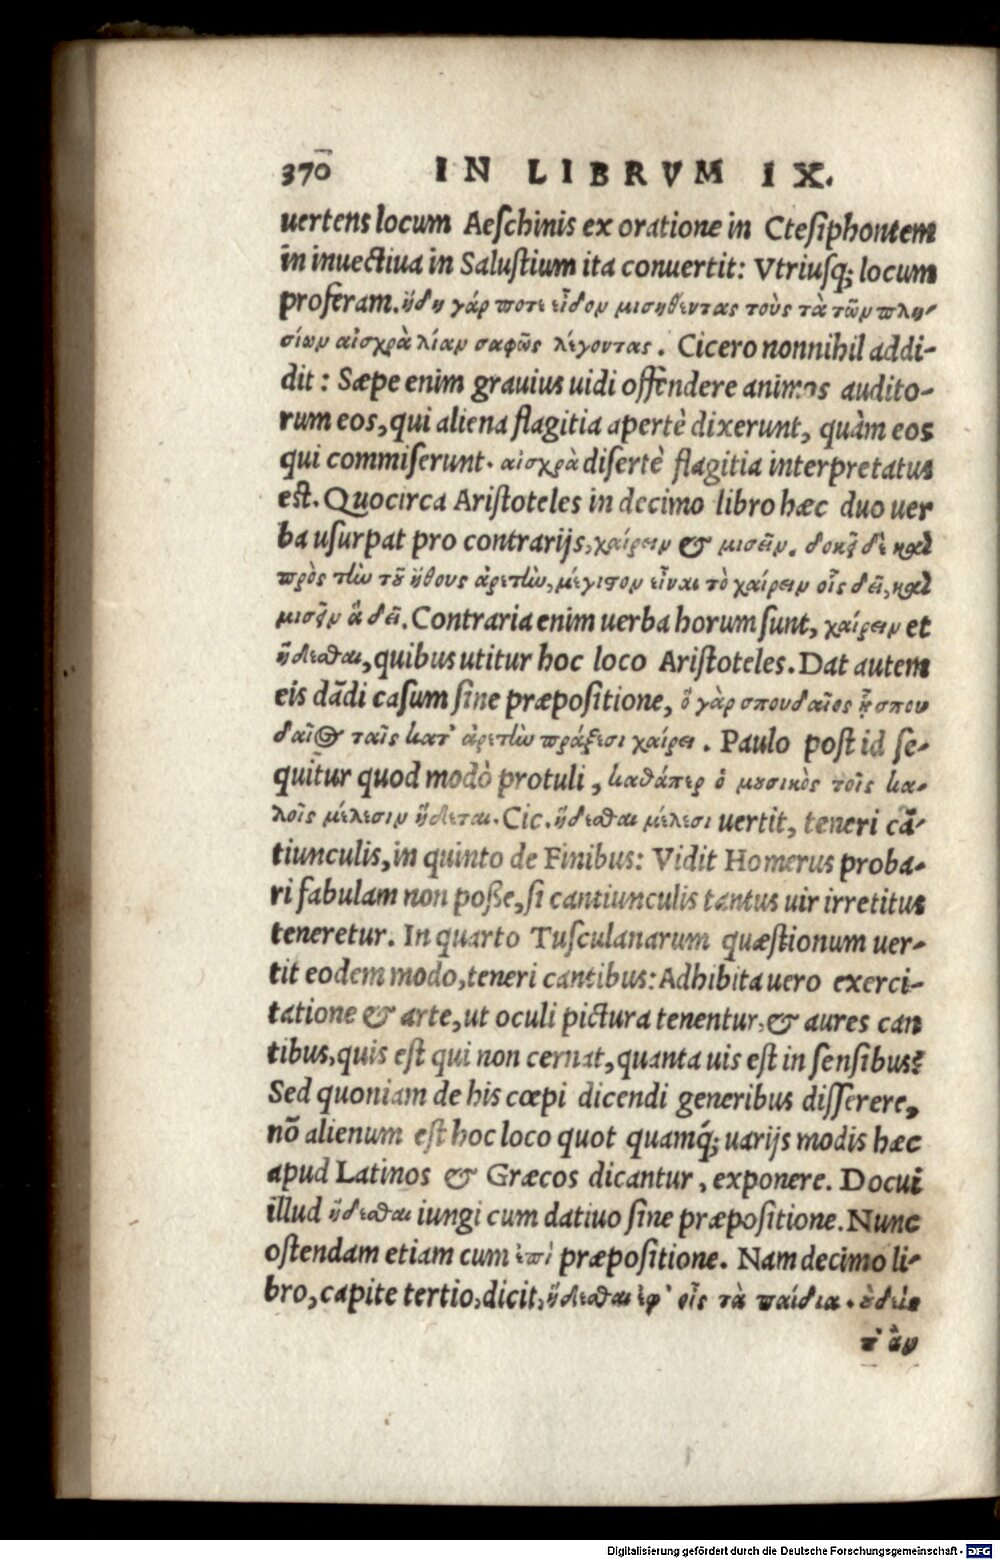 370 IN LIBRVM IX.
uertens locum Aeschinis ex oratione in Ctesiphontem
in inuectiua in Salustium ita conuertit: Vtriusq; locum
proferam. ἤδη γάρ ποτε εἶδον μισηθέντας τοὺς τὰ τῶν πλη-
σίων αἰσχρὰ λίαν σαφῶς λέγοντας. Cicero nonnihil addi-
dit: Sæpe enim grauius uidi offendere animos audito-
rum eos, qui aliena flagitia apertè dixerunt, quàm eos
qui commiserunt. αἰσχρὰ disertè flagitia interpretatus
est. Quocirca Aristoteles in decimo libro hæc duo uer
ba usurpat pro contrarijs, χαίρειν & μισεῖν. δοκεῖ δὲ καὶ
πρὸς τὴν τοῦ ἤθους ἀρετὴν, μέγιστον εἶναι τὸ χαίρειν οἷς δεῖ, καὶ
μισεῖν ἃ δεῖ. Contraria enim uerba horum sunt, χαίρειν et
ἥδεσθαι, quibus utitur hoc loco Aristoteles. Dat autem
eis dãdi casum sine præpositione, ὁ γὰρ σπουδαῖος ᾗ σπου
δαῖος ταῖς κατ' ἀρετὴν πράξεσι χαίρει. Paulo post id se-
quitur quod modò protuli, καθάπερ ὁ μουσικὸς τοῖς κα-
λοῖς μέλεσιν ἥδεται. Cic. ἥδεσθαι μέλεσι uertit, teneri cã-
tiunculis, in quinto de Finibus: Vidit Homerus proba-
ri fabulam non posse, si cantiunculis tantus uir irretitus
teneretur. In quarto Tusculanarum quæstionum uer-
tit eodem modo, teneri cantibus: Adhibita uero exerci-
tatione & arte, ut oculi pictura tenentur, & aures can
tibus, quis est qui non cernat, quanta uis est in sensibus?
Sed quoniam de his cœpi dicendi generibus disserere,
nõ alienum est hoc loco quot quamq́; uarijs modis hæc
apud Latinos & Græcos dicantur, exponere. Docui
illud ἥδεσθαι iungi cum datiuo sine præpositione. Nunc
ostendam etiam cum ἐπὶ præpositione. Nam decimo li-
bro, capite tertio, dicit, ἥδεσθαι ἐφ' οἷς τὰ παίδια. οὐδείς
τ' ἂν
Digitalisierung gefördert durch die Deutsche Forschungsgemeinschaft - DFG